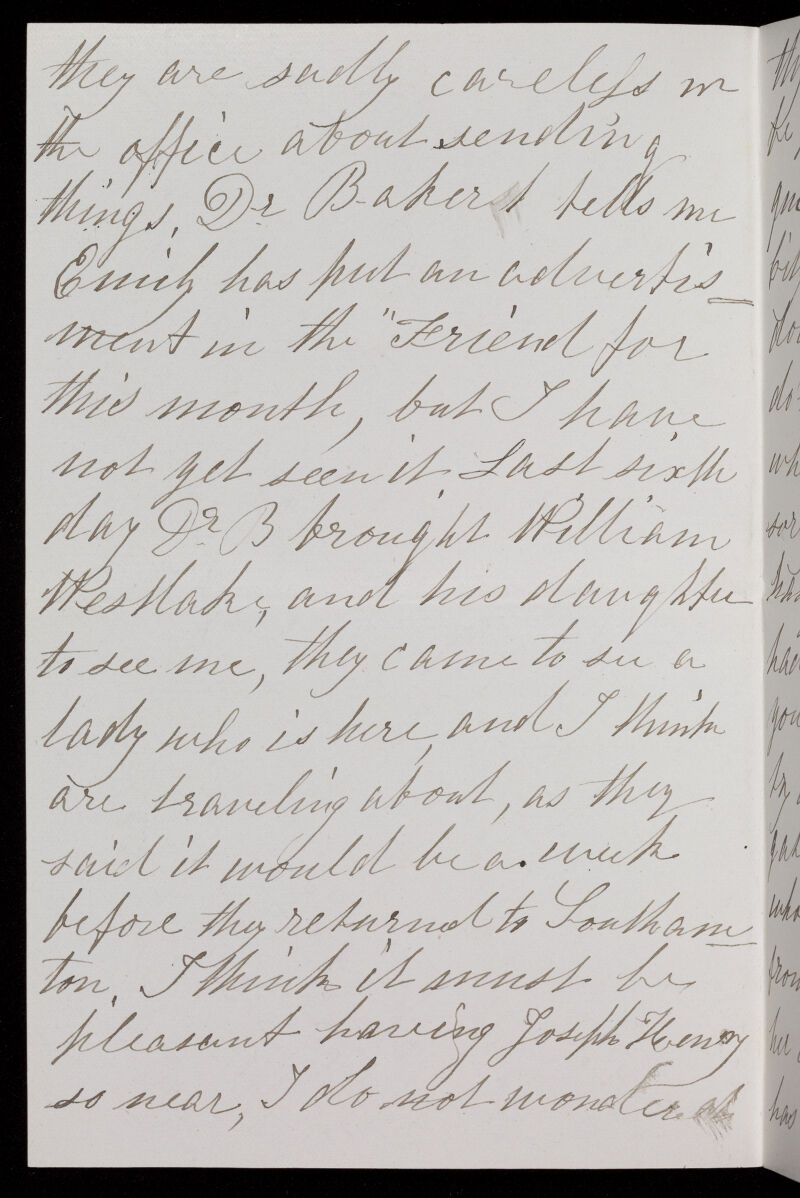 they are sadly careless in
the office about sending
things, Dr Baker tells me
Emily has put an advertis_
ment in the "Friend for
this month, but I have
not yet seen it Last sixth
day Dr B brought William
Westlake, and his daughter
to see me, they came to see a
lady who is here, and I think
are traveling about, as they
said it would be a week
before they returned to Southam_
ton, I think it must be
pleasant having Joseph Henry
so near, I do not wonder at